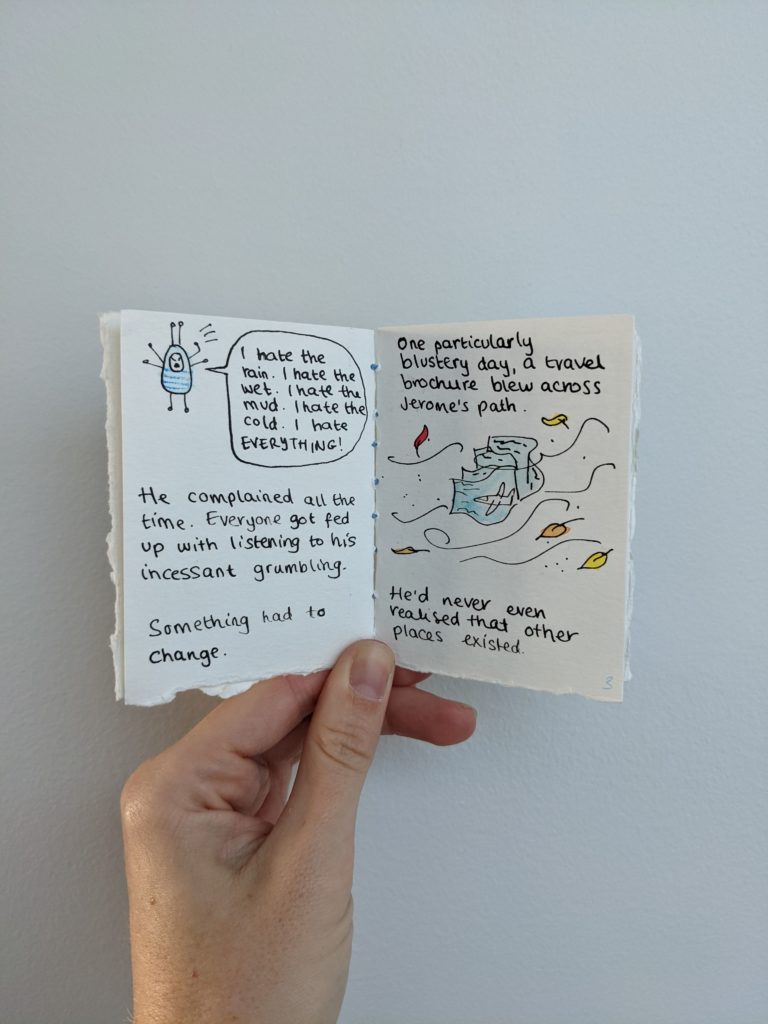 I hate the
rain. I hate the
wet. I hate the
mud. I hate the
cold. I hate
EVERYTHING!
He complained all the
time. Everyone got fed
up with listening to his
incessant grumbling.
Something had to
change.
One particularly
blustery day, a travel
brochure blew across
Jerome's path.
He'd never even
realised that other
places existed.
3